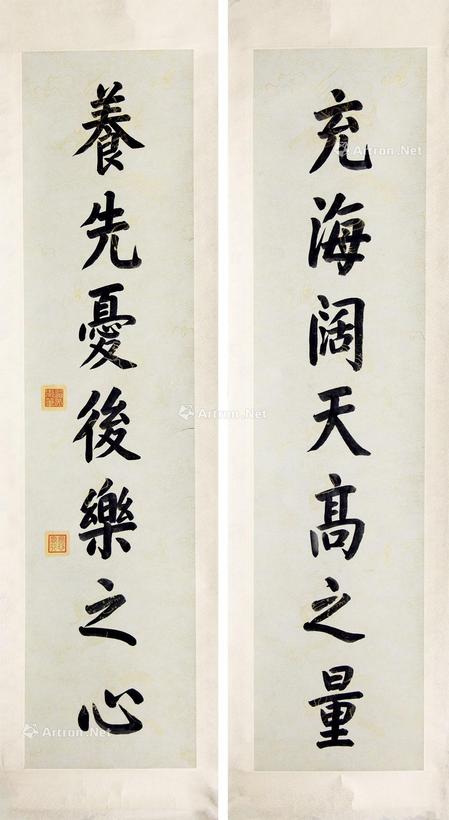 充海阔天高之量
養先憂後樂之心
Artron.Net
Artron.Net
Artron.Net